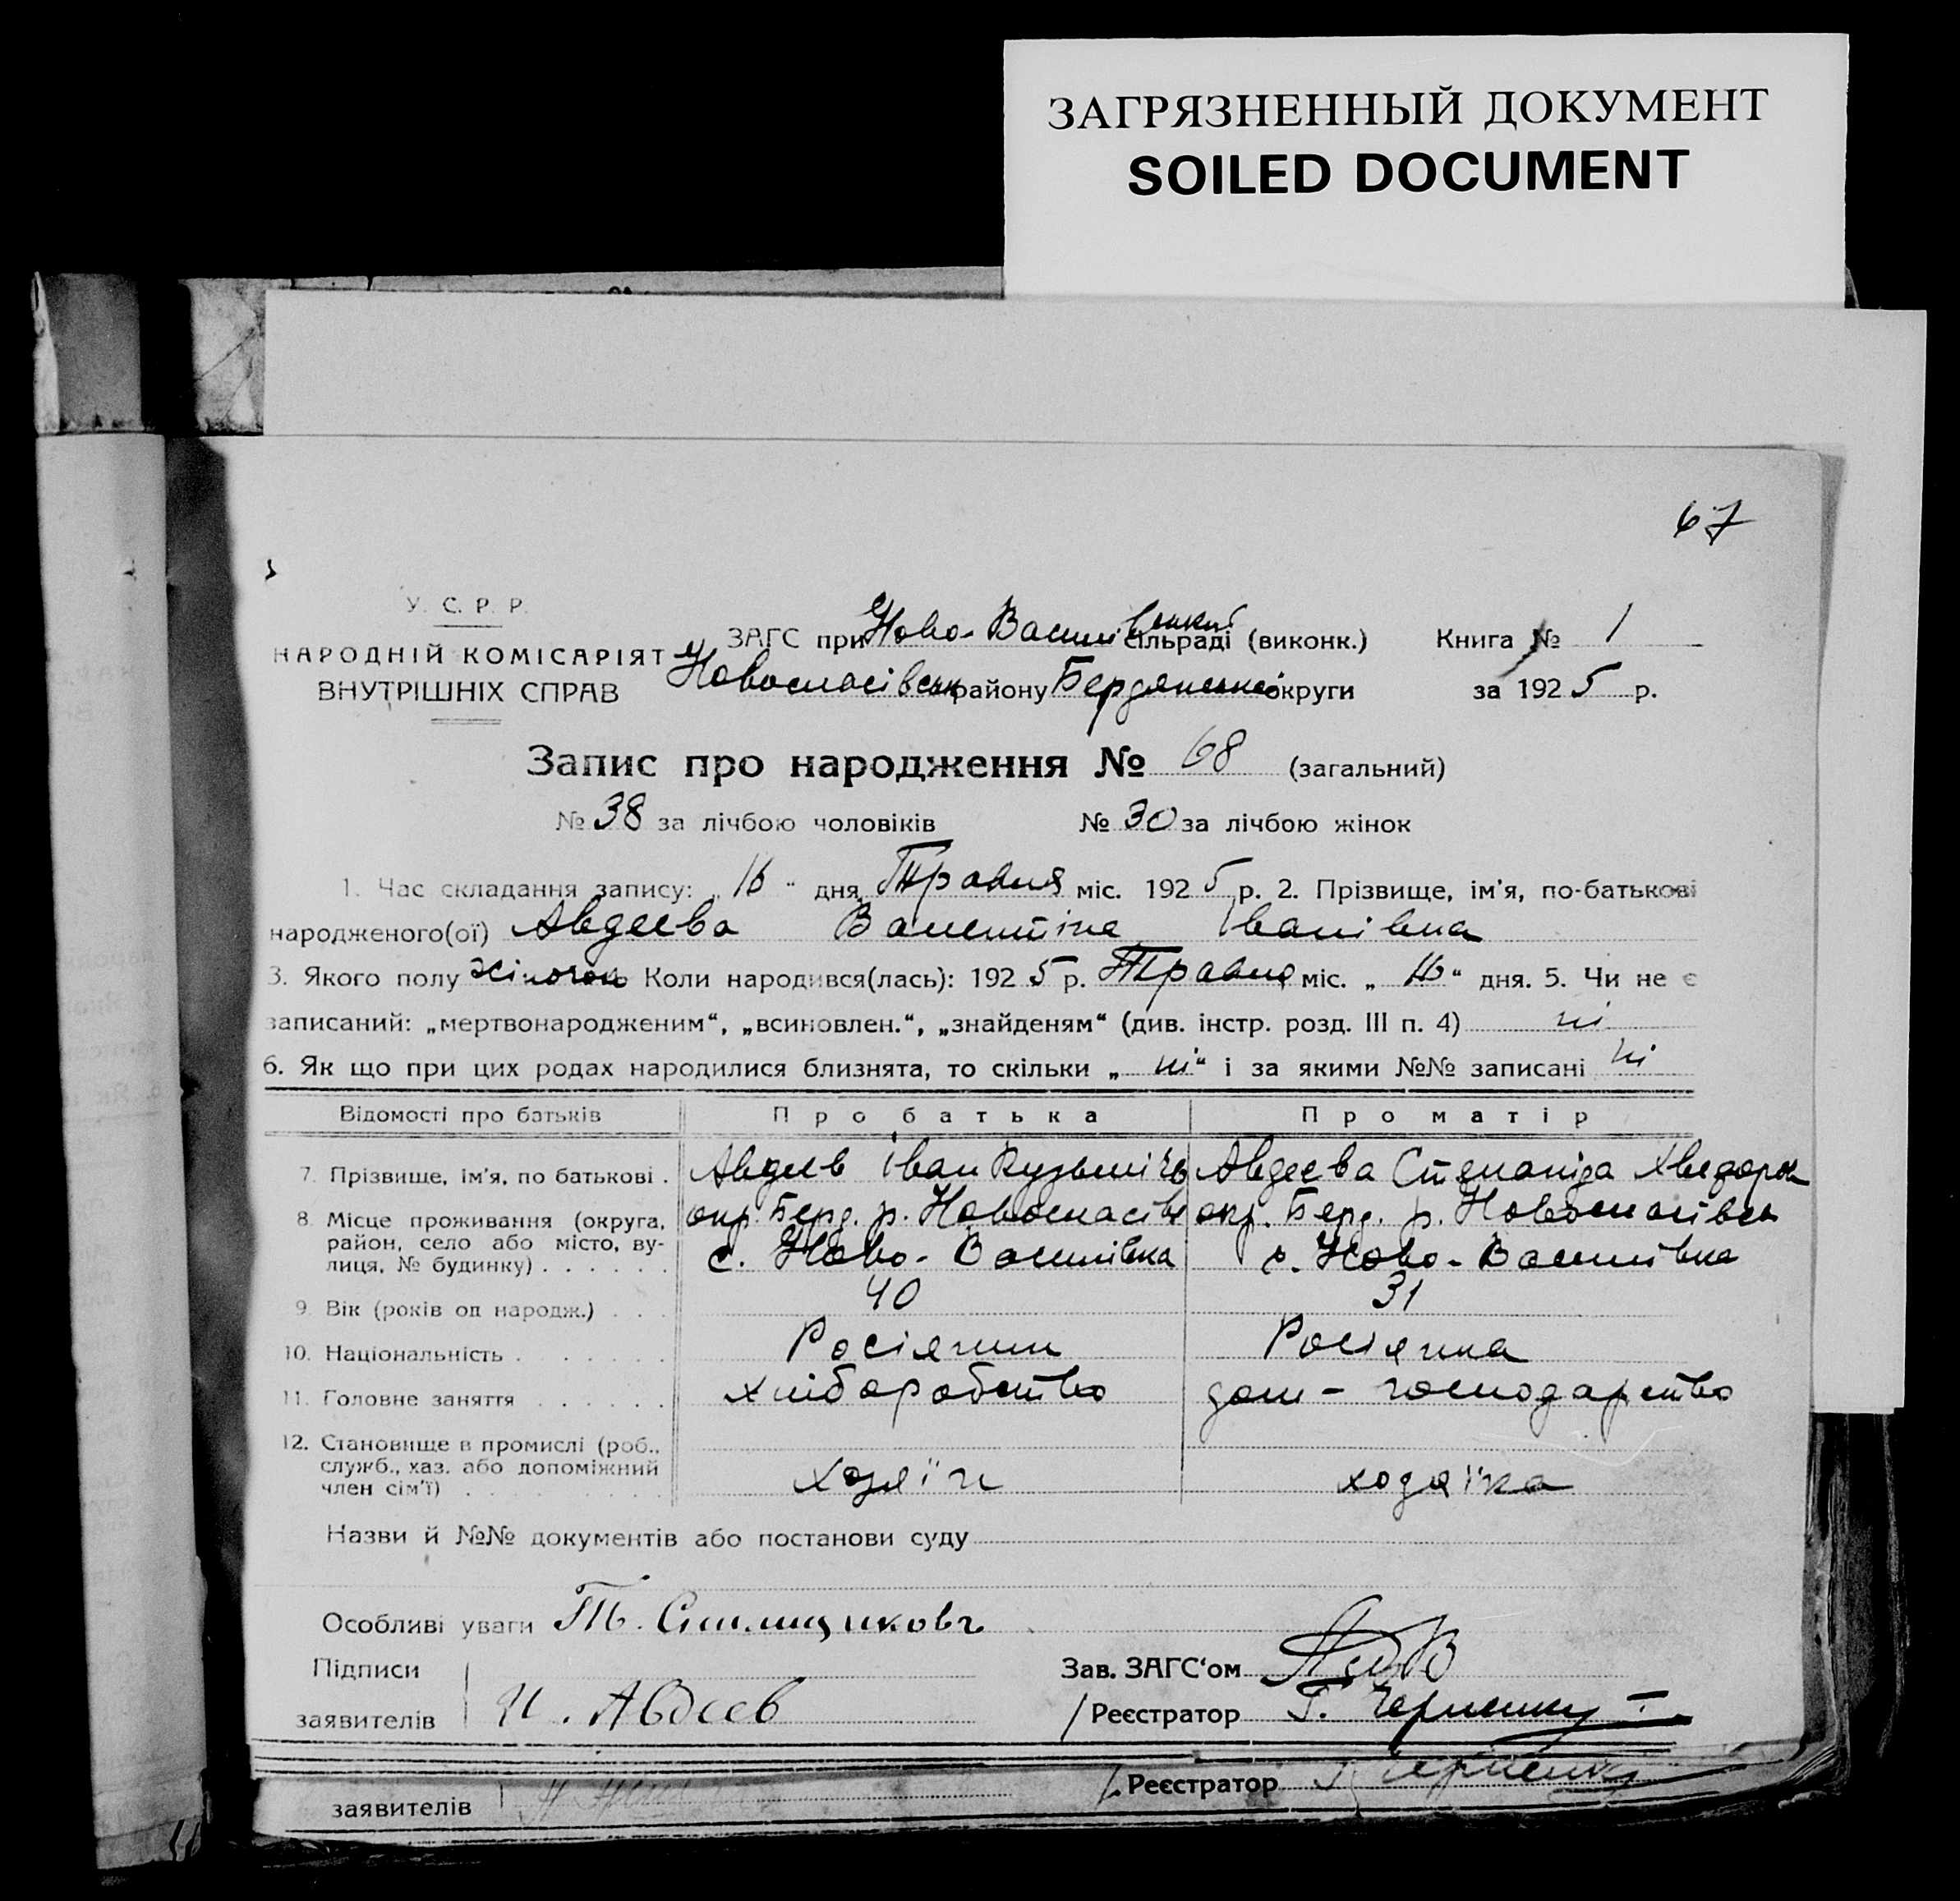 ЗАГРЯЗНЕННЫЙ ДОКУМЕНТ
SOILED DOCUMENT
67
У. С. Р. Р.
НАРОДНІЙ КОМІСАРІЯТ
ВНУТРІШНІХ СПРАВ
ЗАГС при Ново-Василівській сільраді (виконк.) Книга № 1
Новоспасівськ району Бердянської округи за 1925 р.
Запис про народження № 68 (загальний)
№ 38 за лічбою чоловіків № 30 за лічбою жінок
1. Час складання запису: „16“ дня Травня міс. 1925 р. 2. Прізвище, ім'я, по-батькові
народженого(ої) Авдеева Валентіна Іванівна
3. Якого полу жіночого Коли народився(лась): 1925 р. Травня міс. „16“ дня. 5. Чи не є
записаний: „мертвонародженим“, „всиновлен.“, „знайденям“ (див. інстр. розд. III п. 4) ні
6. Як що при цих родах народилися близнята, то скільки „ні“ і за якими №№ записані ні
Відомості про батьків Про батька Про матір
7. Прізвище, ім'я, по батькові . Авдеєв Іван Кузьмічь Авдеєва Степаніда Хведоров
8. Місце проживання (округа, район, село або місто, вулиця, № будинку) . . . . . . окр. Берд. р. Новоспасівс с. Ново-Василівка окр. Берд. р. Новоспасівсь с. Ново-Василівка
9. Вік (років од народж.) . . . 40 31
10. Національність . . . . . . . Росіянин Росіянка
11. Головне заняття . . . . . . Хліборобство дом-господарство
12. Становище в промислі (роб., служб., хаз. або допоміжний член сім'ї) . . . . . . . . . хозяїн хозяїка
Назви й №№ документів або постанови суду
Особливі уваги
Підписи
заявителів И. Авдеев
Зав. ЗАГС'ом
Реєстратор Г. Черненку
заявителів
Реєстратор